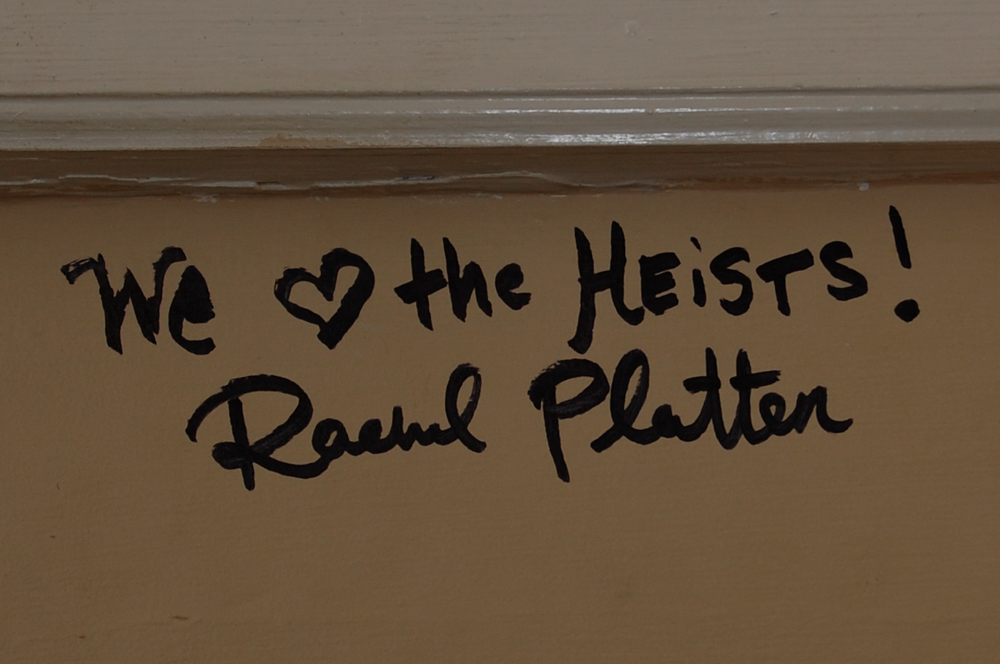 We ♥ the HEiSTS!
Rachel Platten